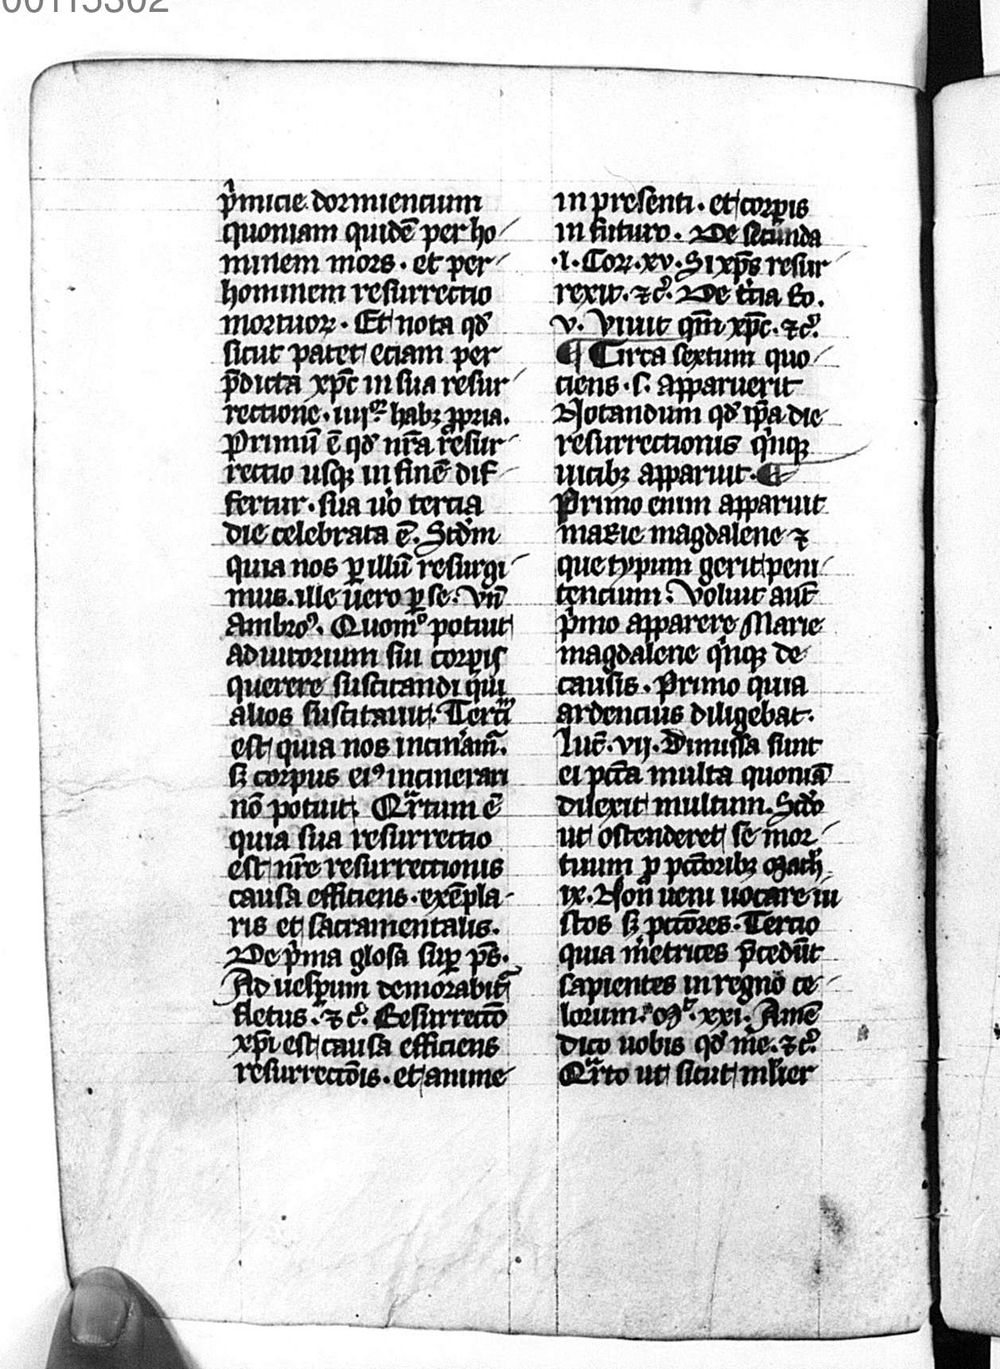 00115302
p̾micie dormiencium
quoniam quidē per ho
minem mors · et per
hominem resurrectio
mortuoꝝ · Et nota qd̾
sicut patet eciam per
p̄dicta xp̄c in sua resur
rectione · iiiiᵒʳ habꝫ ꝓpria.
Primū ē qd̾ nr̄a resur
rectio usqꝫ in finē dif
fertur · sua u̾o tercia
die celebrata ē. Scd̾m
quia nos ꝑ illū resurgi
mus. ille uero ꝑ se. Vn̄
Ambroꝰ. Quomͦ potuit
adiutorium sui corꝑis
querere suscitandi qui
alios suscitauit. Terciū
est quia nos incin̾am̾.
sꝫ corpus eiꝰ incinerari
nō potuit. Qᵃrtum ē
quia sua resurrectio
est nr̄e resurrectionis
causa efficiens · exēpla
ris et sacramentalis.
De p̾ma glosa suꝑ ps̄.
Ad uesꝑum demorabit̾
fletus · ⁊ cͦ. Resurrectō
xp̄i est causa efficiens
resurrectōis · et anime
in presenti · et corꝑis
in futuro. De secunda
·I· Corꝝ. xv. Si xp̄s resur
rexit. ⁊ c̾. De t̾cia Ro.
v. Viuit qm̄ xp̄c. ⁊ c̾.
¶ Circa sextum quo
ciens · s̾. apparuerit
Notandum qd̾ ip̄a die
resurrectionis q̾nqꝫ
uicibꝫ apparuit · ¶
Primo enim apparuit
marie magdalene ⁊
que typum gerit peni
tencium. Voluit aut̄
p̾mo apparere Marie
magdalene q̾nqꝫ de
causis. Primo quia
ardencius diligebat.
Luc̄. vij. Dimissa sunt
ei pct̄a multa quoniā
dilexit multum. Scd̾o
ut ostenderet se mor
tuum ꝓ pctōribꝫ Math̾.
ix. Non ueni uocare iu
stos sꝫ pctōres. Tercio
quia m̾etrices p̄cedūt
sapientes in regno ce
lorum. Mͭ. xxi. Amē
dico uobis qd̾ me. ⁊ c̾.
Qᵃrto ut sicut ml̾ier